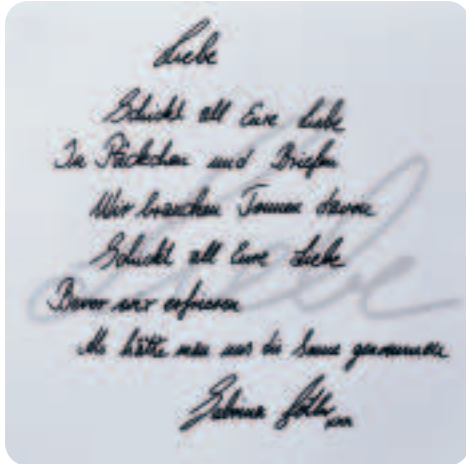 Liebe
Schickt all Eure Liebe
In Päckchen und Briefen
Wir brauchen Tonnen davon
Schickt all Eure Liebe
Bevor wir erfrieren
Als hätte man uns die Sonne genommen
Sabine
Liebe